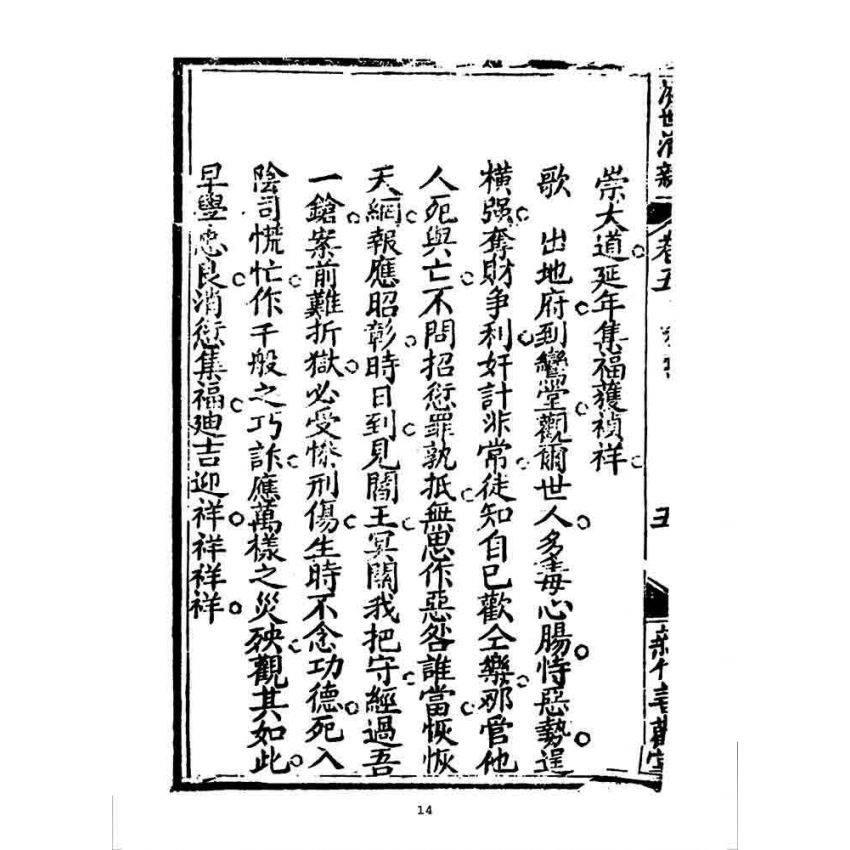 崇大道延年集福獲禎祥
歌 出地府到鸞堂觀爾世人多毒心腸恃惡勢逞
橫强奪財争利奸計非常徒知自己歡仝樂那管他
人死與亡不問招愆罪孰抵無思作惡咎誰當恢恢
天網報應昭彰時日到見閻王冥關我把守經過吾
一鎗案前難折獄必受慘刑傷生時不念功德死入
陰司慌忙作千般之巧詐應萬樣之災殃觀其如此
早學忠良消愆集福廸吉迎祥祥祥祥
卷五
五
14